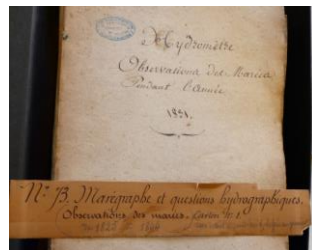 Hydromètre
Observations des Marées
Pendant l'année
1831.
N° B. Marégraphe et questions hydrographiques.
Observations des marées. Carton n° 1.